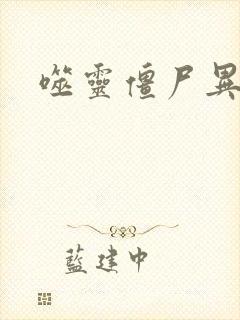 噬靈僵尸異
藍建中